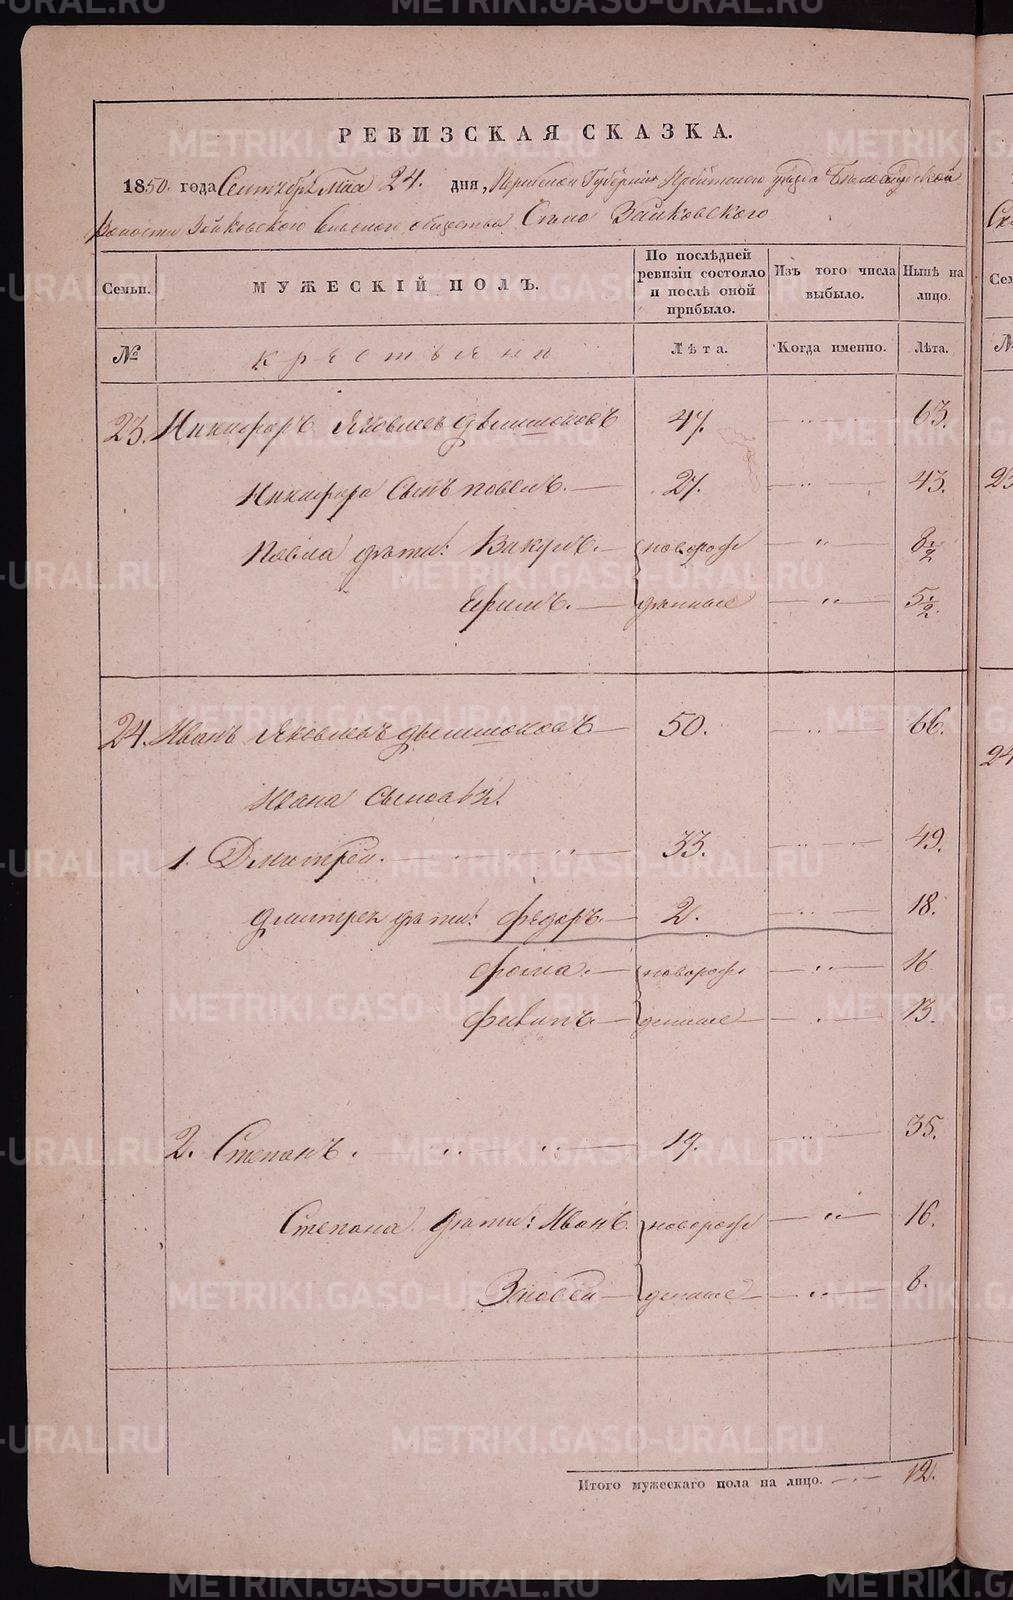 METRIKI.GASO-URAL.RU
РЕВИЗСКАЯ СКАЗКА.
1850. года Сентября Мца 24. дня, Пермской Губернiи Ирбитскаго уѣзда Бѣлослудской
Волости Зайковскаго Сельскаго общества Села Зайковского
Семьи. МУЖЕСКІЙ ПОЛЪ. По послѣдней ревизіи состояло и послѣ оной прибыло. Изъ того числа выбыло. Нынѣ на лицо.
№ крестьяни Лѣта. Когда именно. Лѣта.
23. Никифоръ Яковлевъ Дымшаковъ 47. — " — 63.
Никифора Сынъ Павелъ. — 27. — " — 43.
Павла дѣти: Вакулъ. — новорож — " — 8 1/2
Ефимъ. — данные — " — 5 1/2.
24. Иванъ Яковлевъ Дымшаковъ — 50. — " — 66.
Ивана Сыновья.
1. Дмитрей. — 33. — " — 49.
Дмитрея дѣти: Федоръ. — 2. — " — 18.
Фома. — новорож — " — 16
Филипъ. — денные — " — 13.
2. Степанъ. — " — " — 19. — " — 35.
Степана дѣти: Иванъ. новорож — " — 16.
Зиновей — денные — " — 8.
Итого мужескаго пола на лицо. — " — 12.